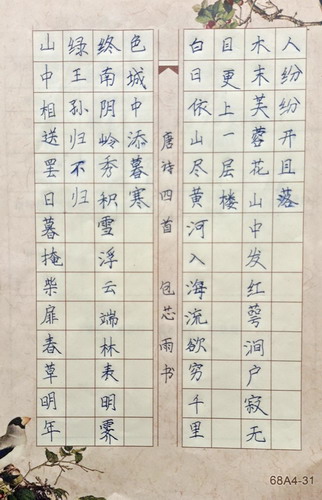 山中相送罢日暮掩柴扉春草明年
绿王孙归不归
终南阴岭秀积雪浮云端林表明霁
色城中添暮寒
唐诗四首 包芯雨书
白日依山尽黄河入海流欲穷千里
目更上一层楼
木末芙蓉花山中发红萼涧户寂无
人纷纷开且落
68A4-31